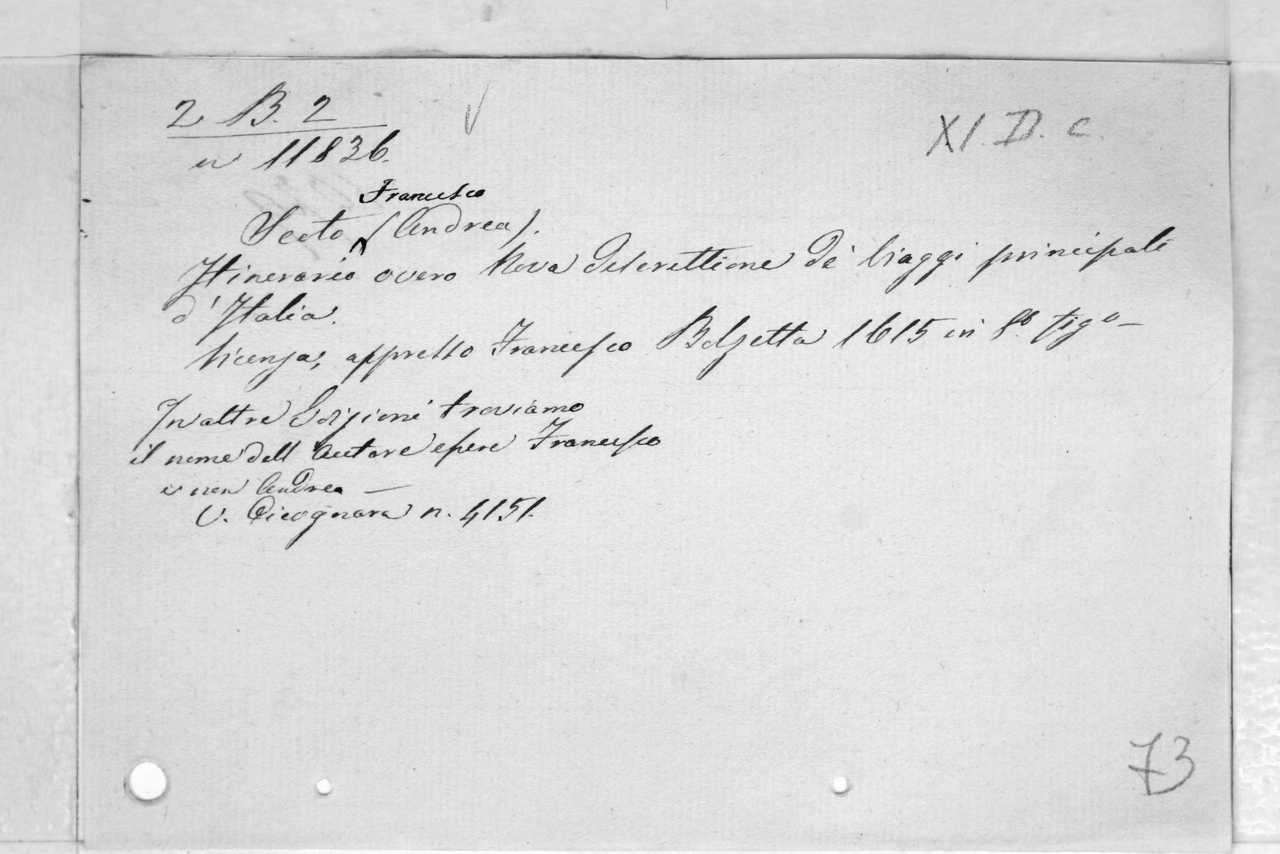 2 B. 2
XI. D. c.
in 11836.
Francesco
Scoto (Andrea).
Itinerario overo Nova descrittione de' viaggi principali
d'Italia.
Vicenza, appresso Francesco Bolzetta 1615 in 8º figº
In altre Edizioni troviamo
il nome dell'autore essere Francesco
e non Andrea —
V. Cicognara n. 4151.
73